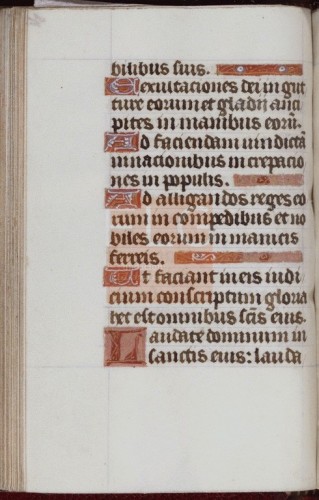 bilibus suis.
Exultaciones dei in gut
ture eorum et gladij anci
pites in manibus eorū.
Ad faciendam uindictā
in nacionibus increpacio
nes in populis.
Ad alligandos reges eo
rum in compedibus et no
biles eorum in manicis
ferreis.
Ut faciant in eis iudi
cium conscriptum gloria
hec est omnibus sc̄is eius.
Laudate dominum in
sanctis eius: lauda